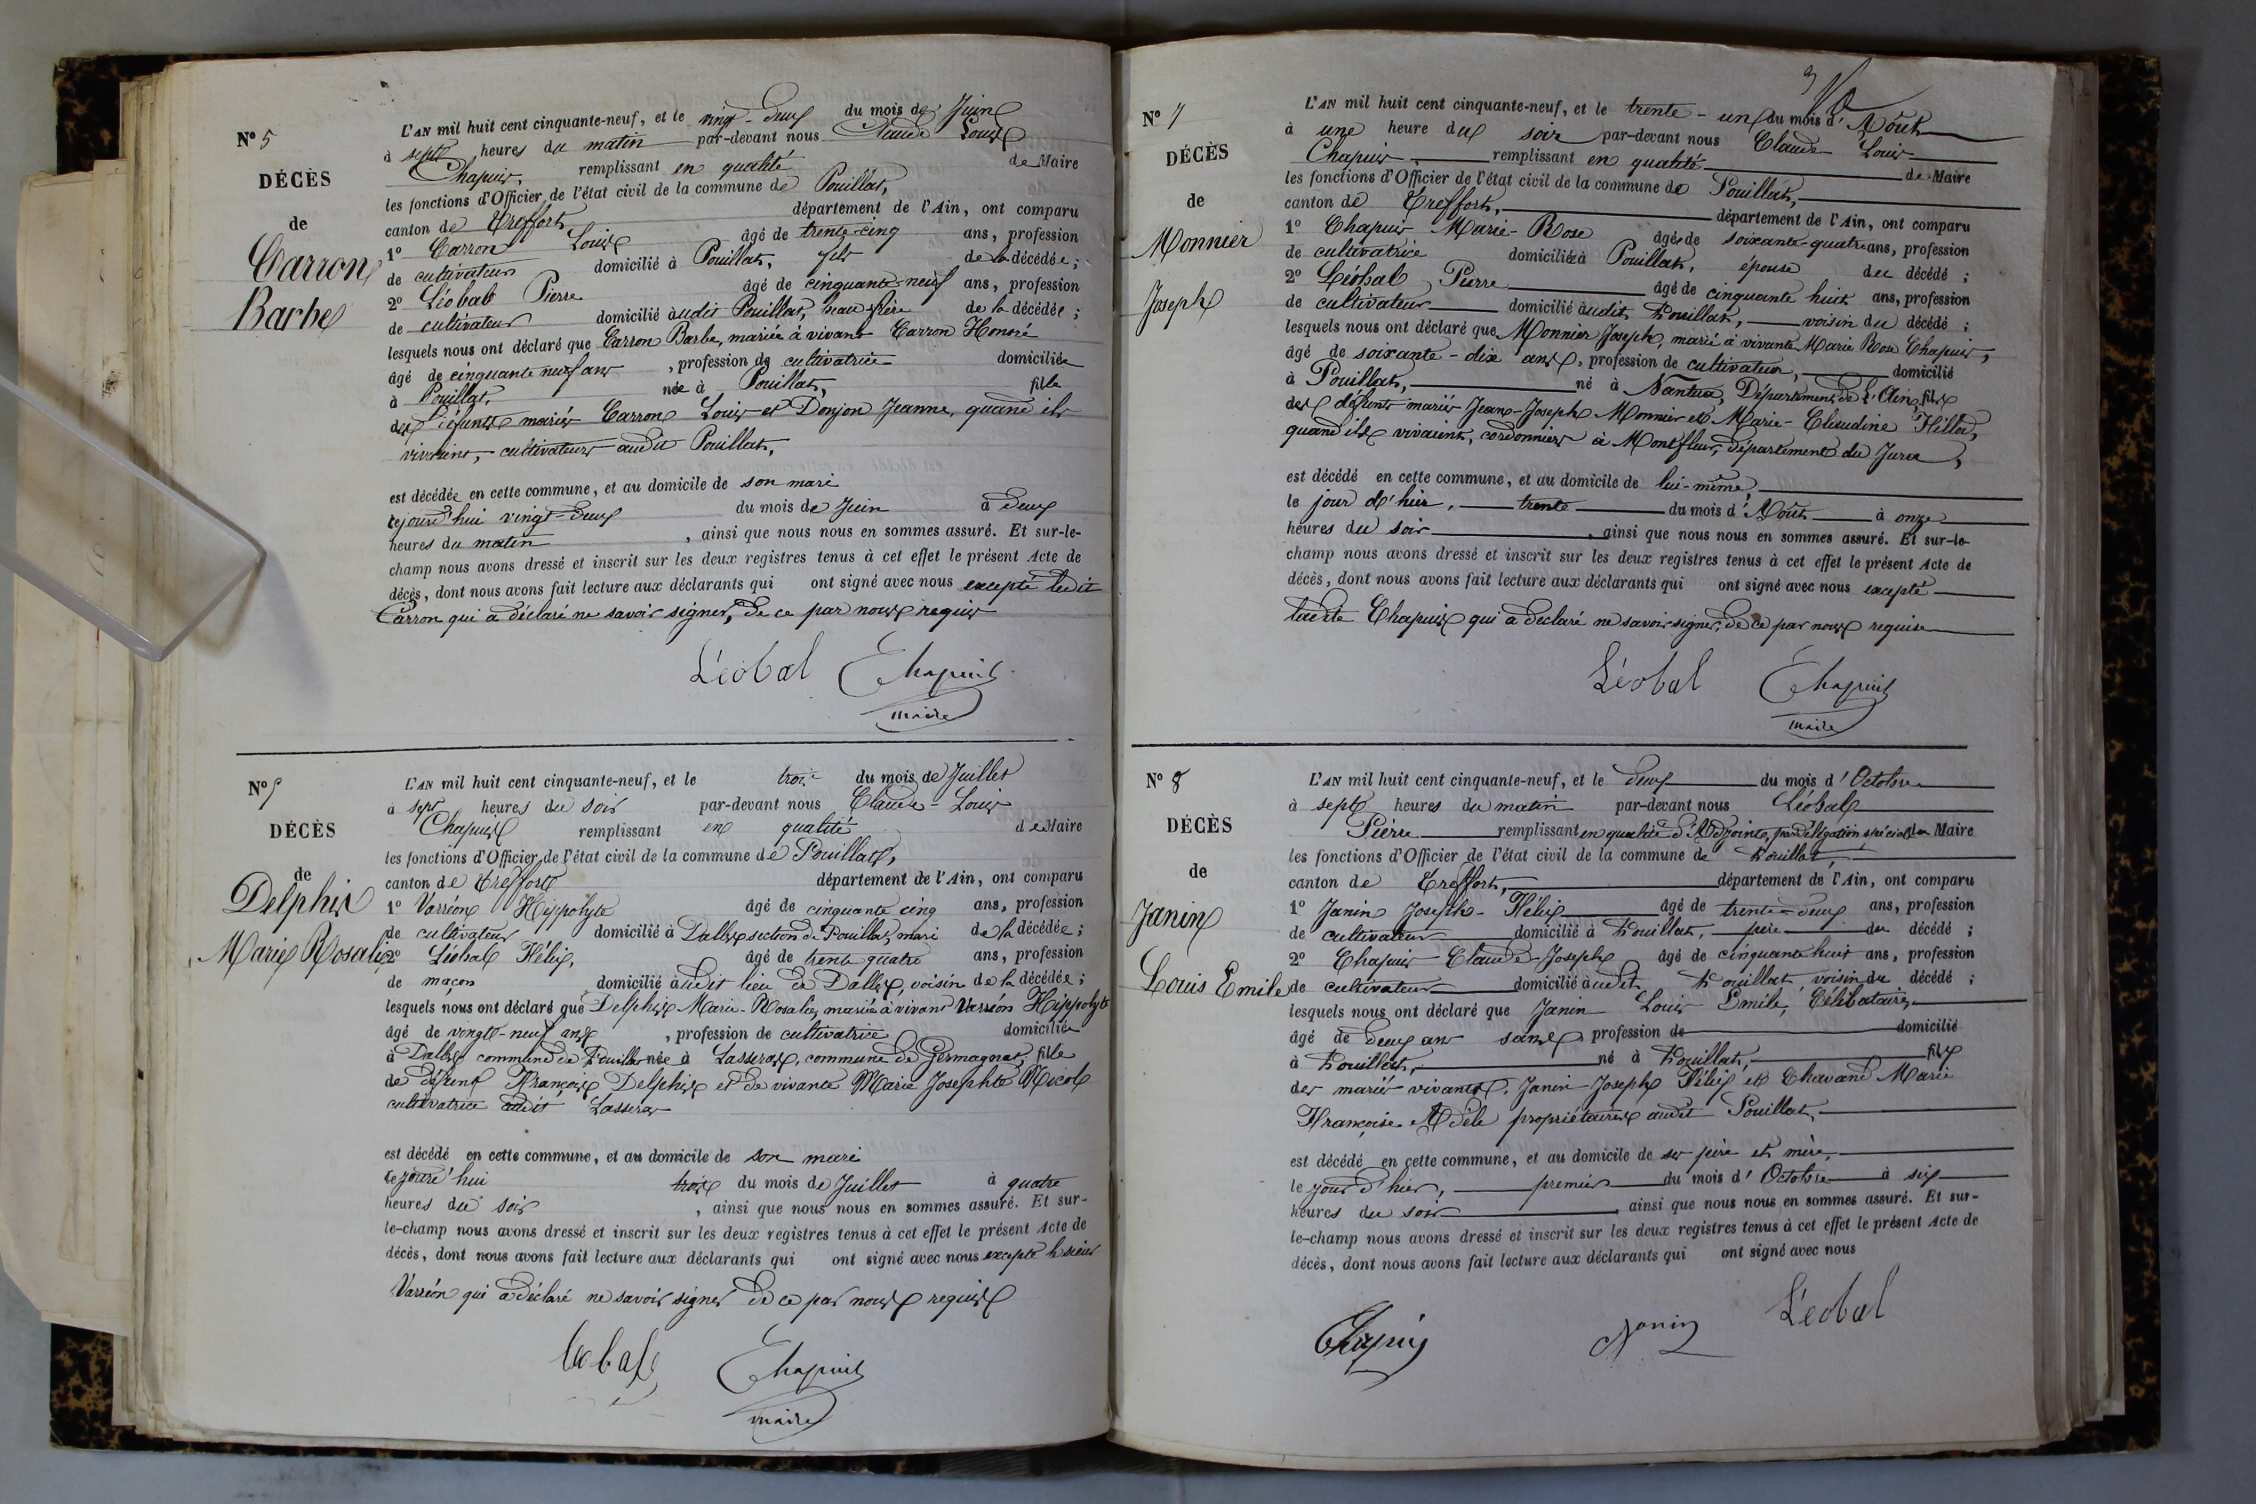 N° 5
DÉCÈS
de
Carron
Barbe
L'AN mil huit cent cinquante-neuf, et le vingt-deux du mois de Juin
à sept heures du matin par-devant nous Claude Louis
Chapuis, remplissant en qualité de Maire
les fonctions d'Officier de l'état civil de la commune de Pouillat,
canton de Treffort département de l'Ain, ont comparu
1° Carron Louis âgé de trente-cinq ans, profession
de cultivateur domicilié à Pouillat, fils de la décédée ;
2° Léobal Pierre âgé de cinquante-neuf ans, profession
de cultivateur domicilié audit Pouillat, beau-frère de la décédée ;
lesquels nous ont déclaré que Carron Barbe, mariée à vivant Carron Honoré
âgé de cinquante neuf ans, profession de cultivatrice domiciliée
à Pouillat, née à Pouillat, fille
des défunts mariés Carron Louis et Donjon Jeanne, quand ils
vivaient, cultivateurs audit Pouillat,
est décédée en cette commune, et au domicile de son mari
cejourd'hui vingt-deux du mois de Juin à deux
heures du matin, ainsi que nous nous en sommes assuré. Et sur-le-
champ nous avons dressé et inscrit sur les deux registres tenus à cet effet le présent Acte de
décès, dont nous avons fait lecture aux déclarants qui ont signé avec nous excepté ledit
Carron qui a déclaré ne savoir signer, de ce par nous requis
Léobal Chapuis
maire
N°
DÉCÈS
de
Delphix
Marie Rosalie
L'AN mil huit cent cinquante-neuf, et le trois du mois de Juillet
à sept heures du soir par-devant nous Claude-Louis
Chapuis remplissant en qualité de Maire
les fonctions d'Officier de l'état civil de la commune de Pouillat,
canton de Treffort département de l'Ain, ont comparu
1° Varréon Hippolyte âgé de cinquante cinq ans, profession
de cultivateur domicilié à Dallex section de Pouillat, mari de la décédée ;
2° Léobal Félix, âgé de trente quatre ans, profession
de maçon domicilié audit lieu de Dallex, voisin de la décédée ;
lesquels nous ont déclaré que Delphix Marie-Rosalie, mariée à vivant Varréon Hippolyte
âgé de vingt-neuf ans, profession de cultivatrice domiciliée
à Dallex commune de Pouillat née à Lasseras, commune de Germagnat, fille
de défunt François Delphix et de vivante Marie Josephte Nicol
cultivatrice audit Lasseras
est décédé en cette commune, et au domicile de son mari
cejourd'hui trois du mois de Juillet à quatre
heures du soir, ainsi que nous nous en sommes assuré. Et sur-
le-champ nous avons dressé et inscrit sur les deux registres tenus à cet effet le présent Acte de
décès, dont nous avons fait lecture aux déclarants qui ont signé avec nous excepté le sieur
Varréon qui a déclaré ne savoir signer de ce par nous requis
Léobal Chapuis
maire
N° 7
DÉCÈS
de
Monnier
Joseph
L'AN mil huit cent cinquante-neuf, et le trente-un du mois d'Août
à une heure du soir par-devant nous Claude Louis
Chapuis, remplissant en qualité de Maire
les fonctions d'Officier de l'état civil de la commune de Pouillat,
canton de Treffort, département de l'Ain, ont comparu
1° Chapuis Marie-Rose âgée de soixante-quatre ans, profession
de cultivatrice domiciliée à Pouillat, épouse du décédé ;
2° Léobal, Pierre âgé de cinquante huit ans, profession
de cultivateur domicilié audit Pouillat, voisin du décédé ;
lesquels nous ont déclaré que Monnier Joseph, marié à vivante Marie Rose Chapuis,
âgé de soixante-dix ans, profession de cultivateur, domicilié
à Pouillat, né à Nantua, Département de l'Ain, fils
des défunts mariés Jean-Joseph Monnier et Marie-Claudine Fillod,
quand ils vivaient, cordonnier à Montfleur, département du Jura,
est décédé en cette commune, et au domicile de lui-même,
le jour d'hier, trente du mois d'Août à onze
heures du soir, ainsi que nous nous en sommes assuré. Et sur-le-
champ nous avons dressé et inscrit sur les deux registres tenus à cet effet le présent Acte de
décès, dont nous avons fait lecture aux déclarants qui ont signé avec nous excepté
ladite Chapuis qui a déclaré ne savoir signer, de ce par nous requise
Léobal Chapuis
maire
N° 8
DÉCÈS
de
Janin
Louis Emile
L'AN mil huit cent cinquante-neuf, et le deux du mois d'Octobre
à sept heures du matin par-devant nous Léobal
Pierre remplissant en qualité d'Adjoint, par délégation spéciale de Maire
les fonctions d'Officier de l'état civil de la commune de Pouillat,
canton de Treffort, département de l'Ain, ont comparu
1° Janin Joseph-Félix âgé de trente-deux ans, profession
de cultivateur domicilié à Pouillat, père du décédé ;
2° Chapuis Claude-Joseph âgé de cinquante huit ans, profession
de cultivateur domicilié audit Pouillat, voisin du décédé ;
lesquels nous ont déclaré que Janin Louis Emile, Célibataire,
âgé de deux ans sans profession de domicilié
à Pouillat, né à Pouillat, fils
des mariés vivants, Janin Joseph Félix et Chavand Marie
Françoise Adèle propriétaires audit Pouillat,
est décédé en cette commune, et au domicile de ses père et mère,
le jour d'hier, premier du mois d'Octobre à six
heures du soir, ainsi que nous nous en sommes assuré. Et sur-
le-champ nous avons dressé et inscrit sur les deux registres tenus à cet effet le présent Acte de
décès, dont nous avons fait lecture aux déclarants qui ont signé avec nous
Léobal
Chapuis Janin